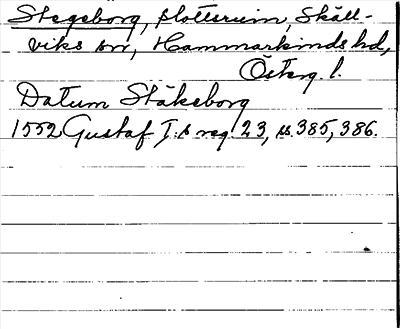 Stegeborg, slottsruin, Skäll-
viks sn, Hammarkinds hd,
Österg. l.
Datum Stäkeborg
1552 Gustaf I:s reg. 23, s. 385, 386.